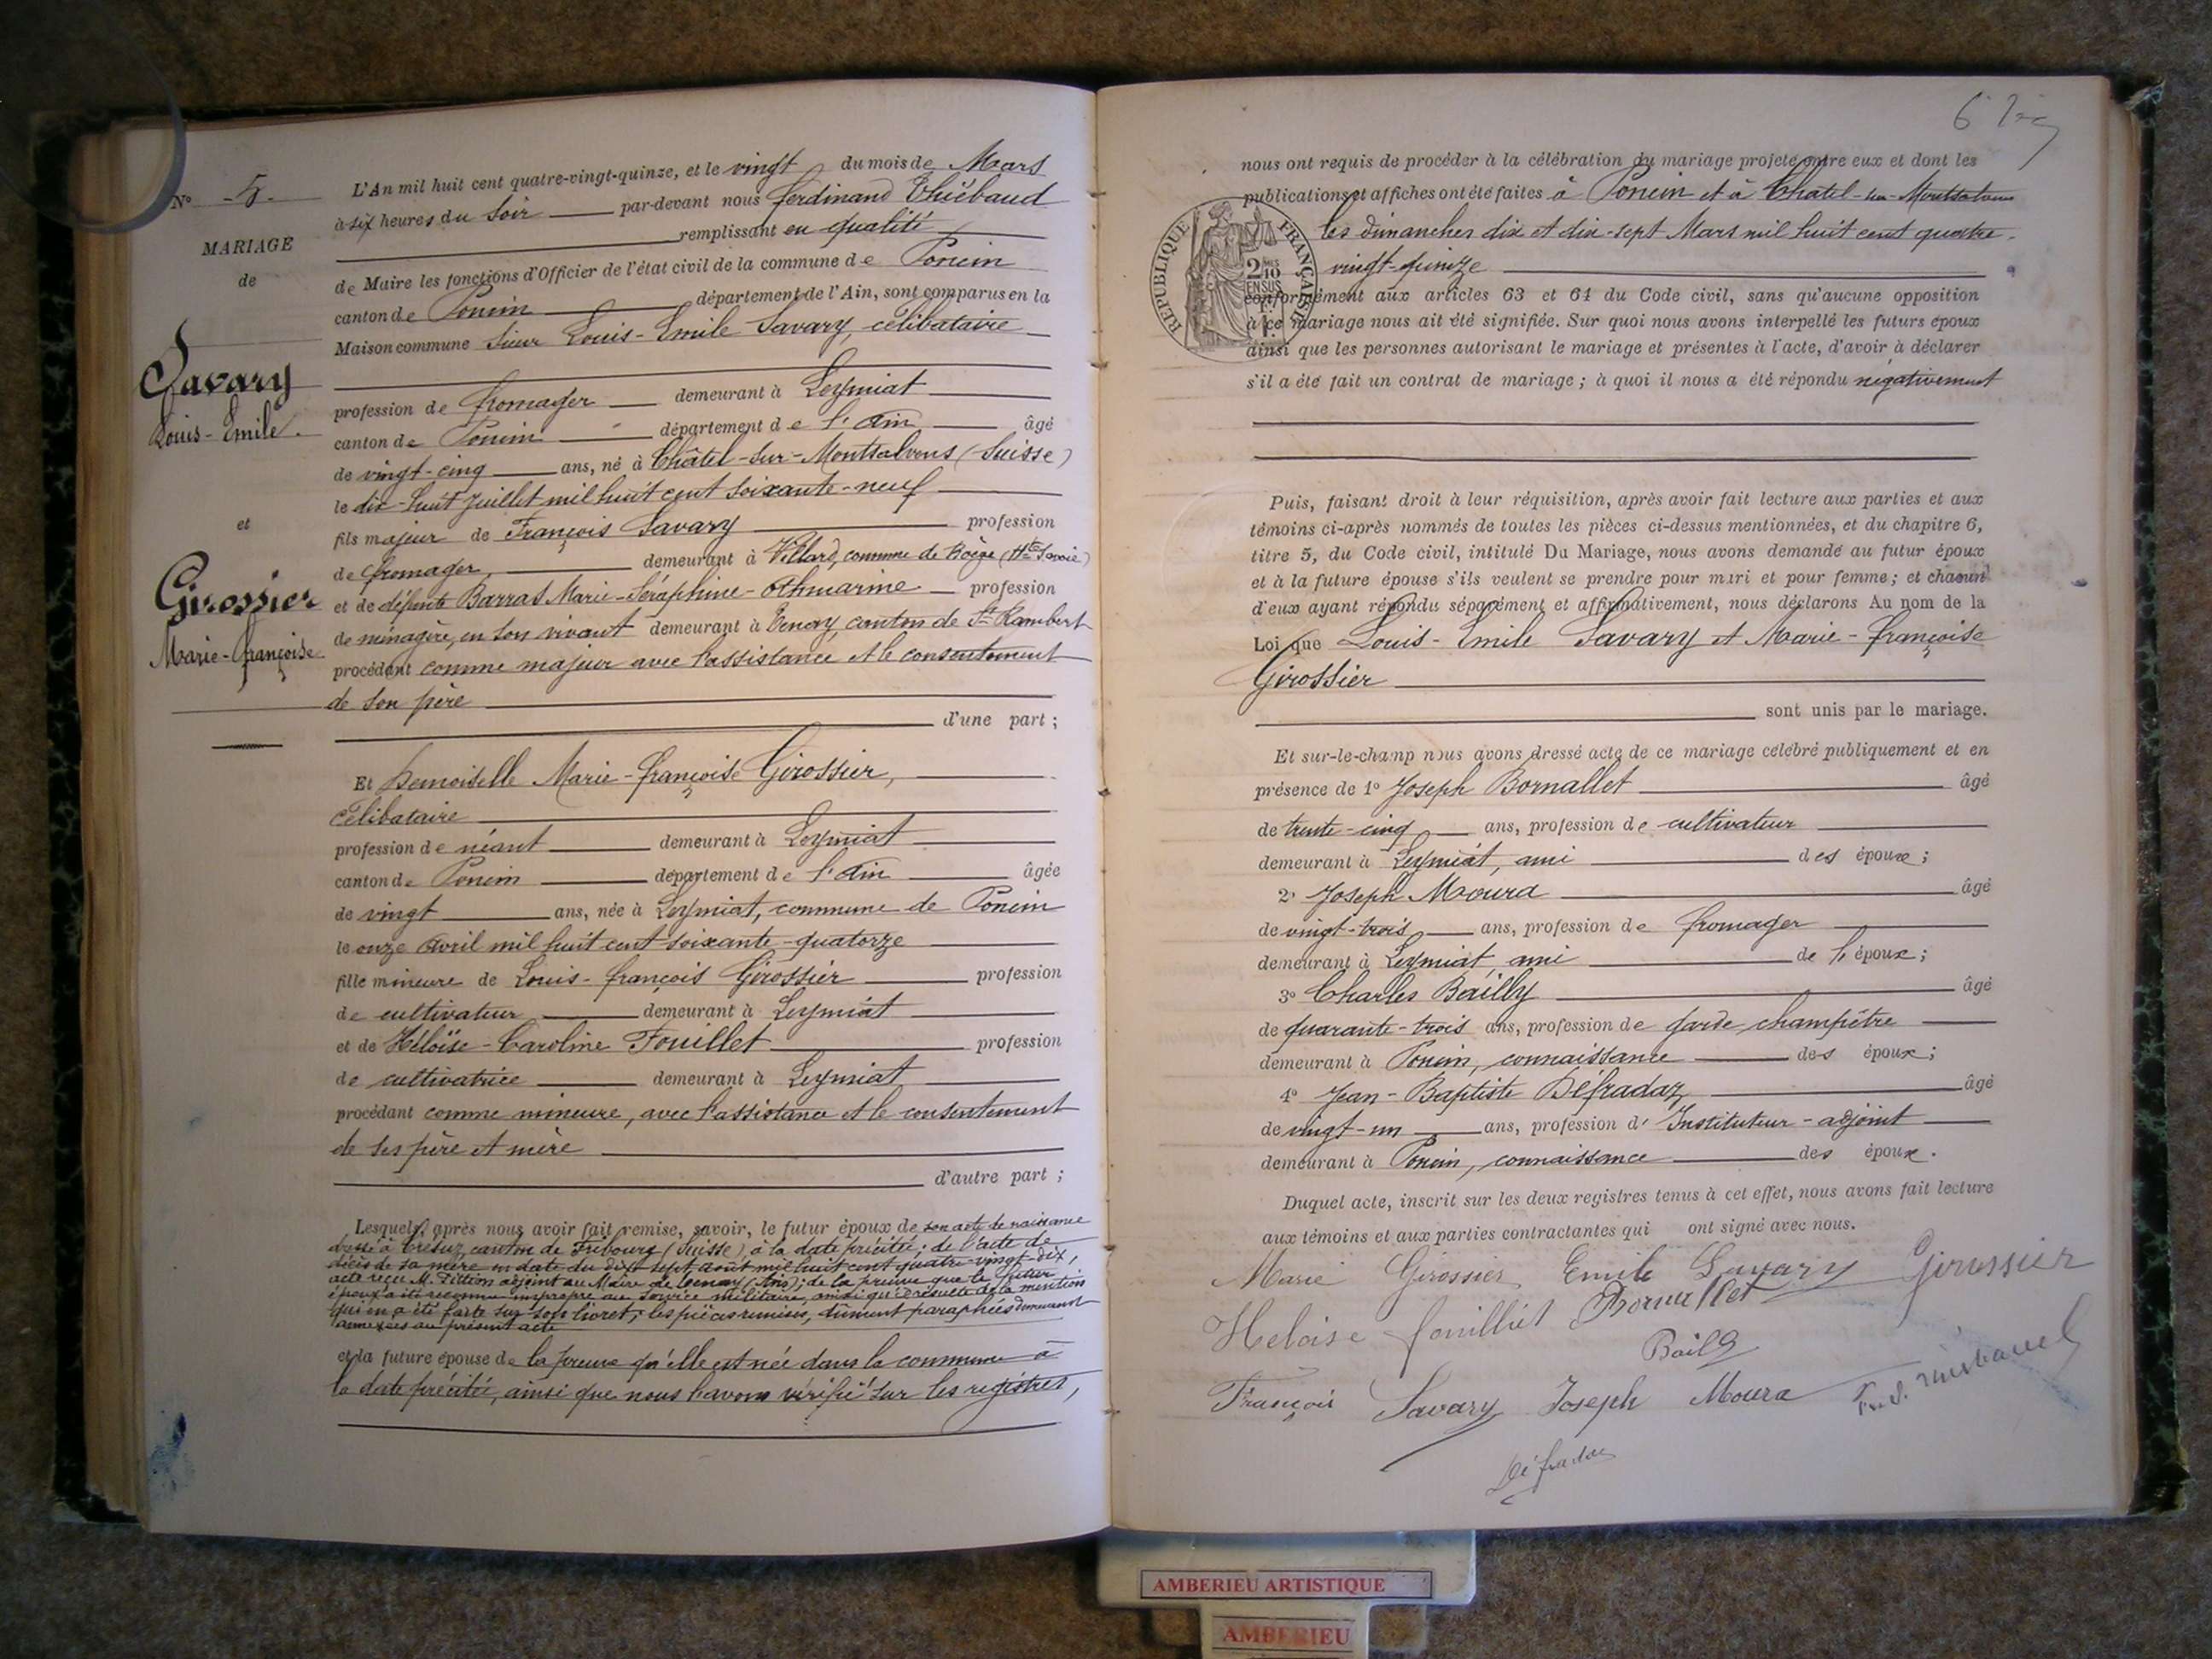 N° -5-
MARIAGE
de
Savary
Louis-Emile.
et
Girossier
Marie-Françoise
L'An mil huit cent quatre-vingt-quinze, et le vingt du mois de Mars
à six heures du soir par-devant nous Ferdinand Thiébaud
remplissant en qualité
de Maire les fonctions d'Officier de l'état civil de la commune de Poncin
canton de Poncin département de l'Ain, sont comparus en la
Maison commune Sieur Louis-Emile Savary, célibataire
profession de fromager demeurant à Leymiat
canton de Poncin département de l'Ain âgé
de vingt-cinq ans, né à Châtel-sur-Montsalvens (Suisse)
le dix-huit Juillet mil huit cent soixante-neuf
fils majeur de François Savary profession
de fromager, demeurant à Villard, commune de Boëge (Hte Savoie)
et de défunte Barras Marie-Séraphine-Othmarine profession
de ménagère, en son vivant demeurant à Tenay, canton de St Rambert
procédant comme majeur avec l'assistance et le consentement
de son père
d'une part ;
Et Demoiselle Marie-Françoise Girossier,
célibataire
profession de néant demeurant à Leymiat
canton de Poncin département de l'Ain âgée
de vingt ans, née à Leymiat, commune de Poncin
le onze Avril mil huit cent soixante-quatorze
fille mineure de Louis-François Girossier profession
de cultivateur demeurant à Leymiat
et de Héloïse-Caroline Fouillet profession
de cultivatrice demeurant à Leymiat
procédant comme mineure, avec l'assistance et le consentement
de ses père et mère
d'autre part ;
Lesquels, après nous avoir fait remise, savoir, le futur époux de son acte de naissance
dressé à Crésuz, canton de Fribourg (Suisse), à la date précitée ; de l'acte de
décès de sa mère en date du dix sept août mil huit cent quatre-vingt-dix,
acte reçu M. adjoint au Maire de Tenay (Ain) ; de la preuve que le futur
époux a été reconnu impropre au service militaire, ainsi qu'il résulte de la mention
qui en a été faite sur son livret ; les pièces remises, dûment paraphées demeurant
annexées au présent acte
et la future épouse de la preuve qu'elle est née dans la commune à
la date précitée, ainsi que nous l'avons vérifié sur les registres,
6
nous ont requis de procéder à la célébration du mariage projeté entre eux et dont les
publications et affiches ont été faites à Poncin et à Chatel-sur-Montsalvens
les dimanches dix et dix-sept Mars mil huit cent quatre-
vingt-quinze
REPUBLIQUE FRANÇAISE
2/10 EN SUS
conformément aux articles 63 et 64 du Code civil, sans qu'aucune opposition
à ce mariage nous ait été signifiée. Sur quoi nous avons interpellé les futurs époux
ainsi que les personnes autorisant le mariage et présentes à l'acte, d'avoir à déclarer
s'il a été fait un contrat de mariage ; à quoi il nous a été répondu négativement
Puis, faisant droit à leur réquisition, après avoir fait lecture aux parties et aux
témoins ci-après nommés de toutes les pièces ci-dessus mentionnées, et du chapitre 6,
titre 5, du Code civil, intitulé Du Mariage, nous avons demandé au futur époux
et à la future épouse s'ils veulent se prendre pour mari et pour femme ; et chacun
d'eux ayant répondu séparément et affirmativement, nous déclarons Au nom de la
Loi que Louis-Emile Savary et Marie-Françoise
Girossier
sont unis par le mariage.
Et sur-le-champ nous avons dressé acte de ce mariage célébré publiquement et en
présence de 1° Joseph Bornallet âgé
de trente-cinq ans, profession de cultivateur
demeurant à Leymiat, ami des époux ;
2° Joseph Moura âgé
de vingt-trois ans, profession de fromager
demeurant à Leymiat, ami de l'époux ;
3° Charles Bailly âgé
de quarante-trois ans, profession de garde champêtre
demeurant à Poncin, connaissance des époux ;
4° Jean-Baptiste Défradaz, âgé
de vingt-un ans, profession d'Instituteur-adjoint
demeurant à Poncin, connaissance des époux.
Duquel acte, inscrit sur les deux registres tenus à cet effet, nous avons fait lecture
aux témoins et aux parties contractantes qui ont signé avec nous.
Marie Girossier Emile Savary Girossier
Heloise fouilliet Bornallet
Bailly
François Savary Joseph Moura Fd. Thiébaud
Défradaz
AMBERIEU ARTISTIQUE
AMBERIEU